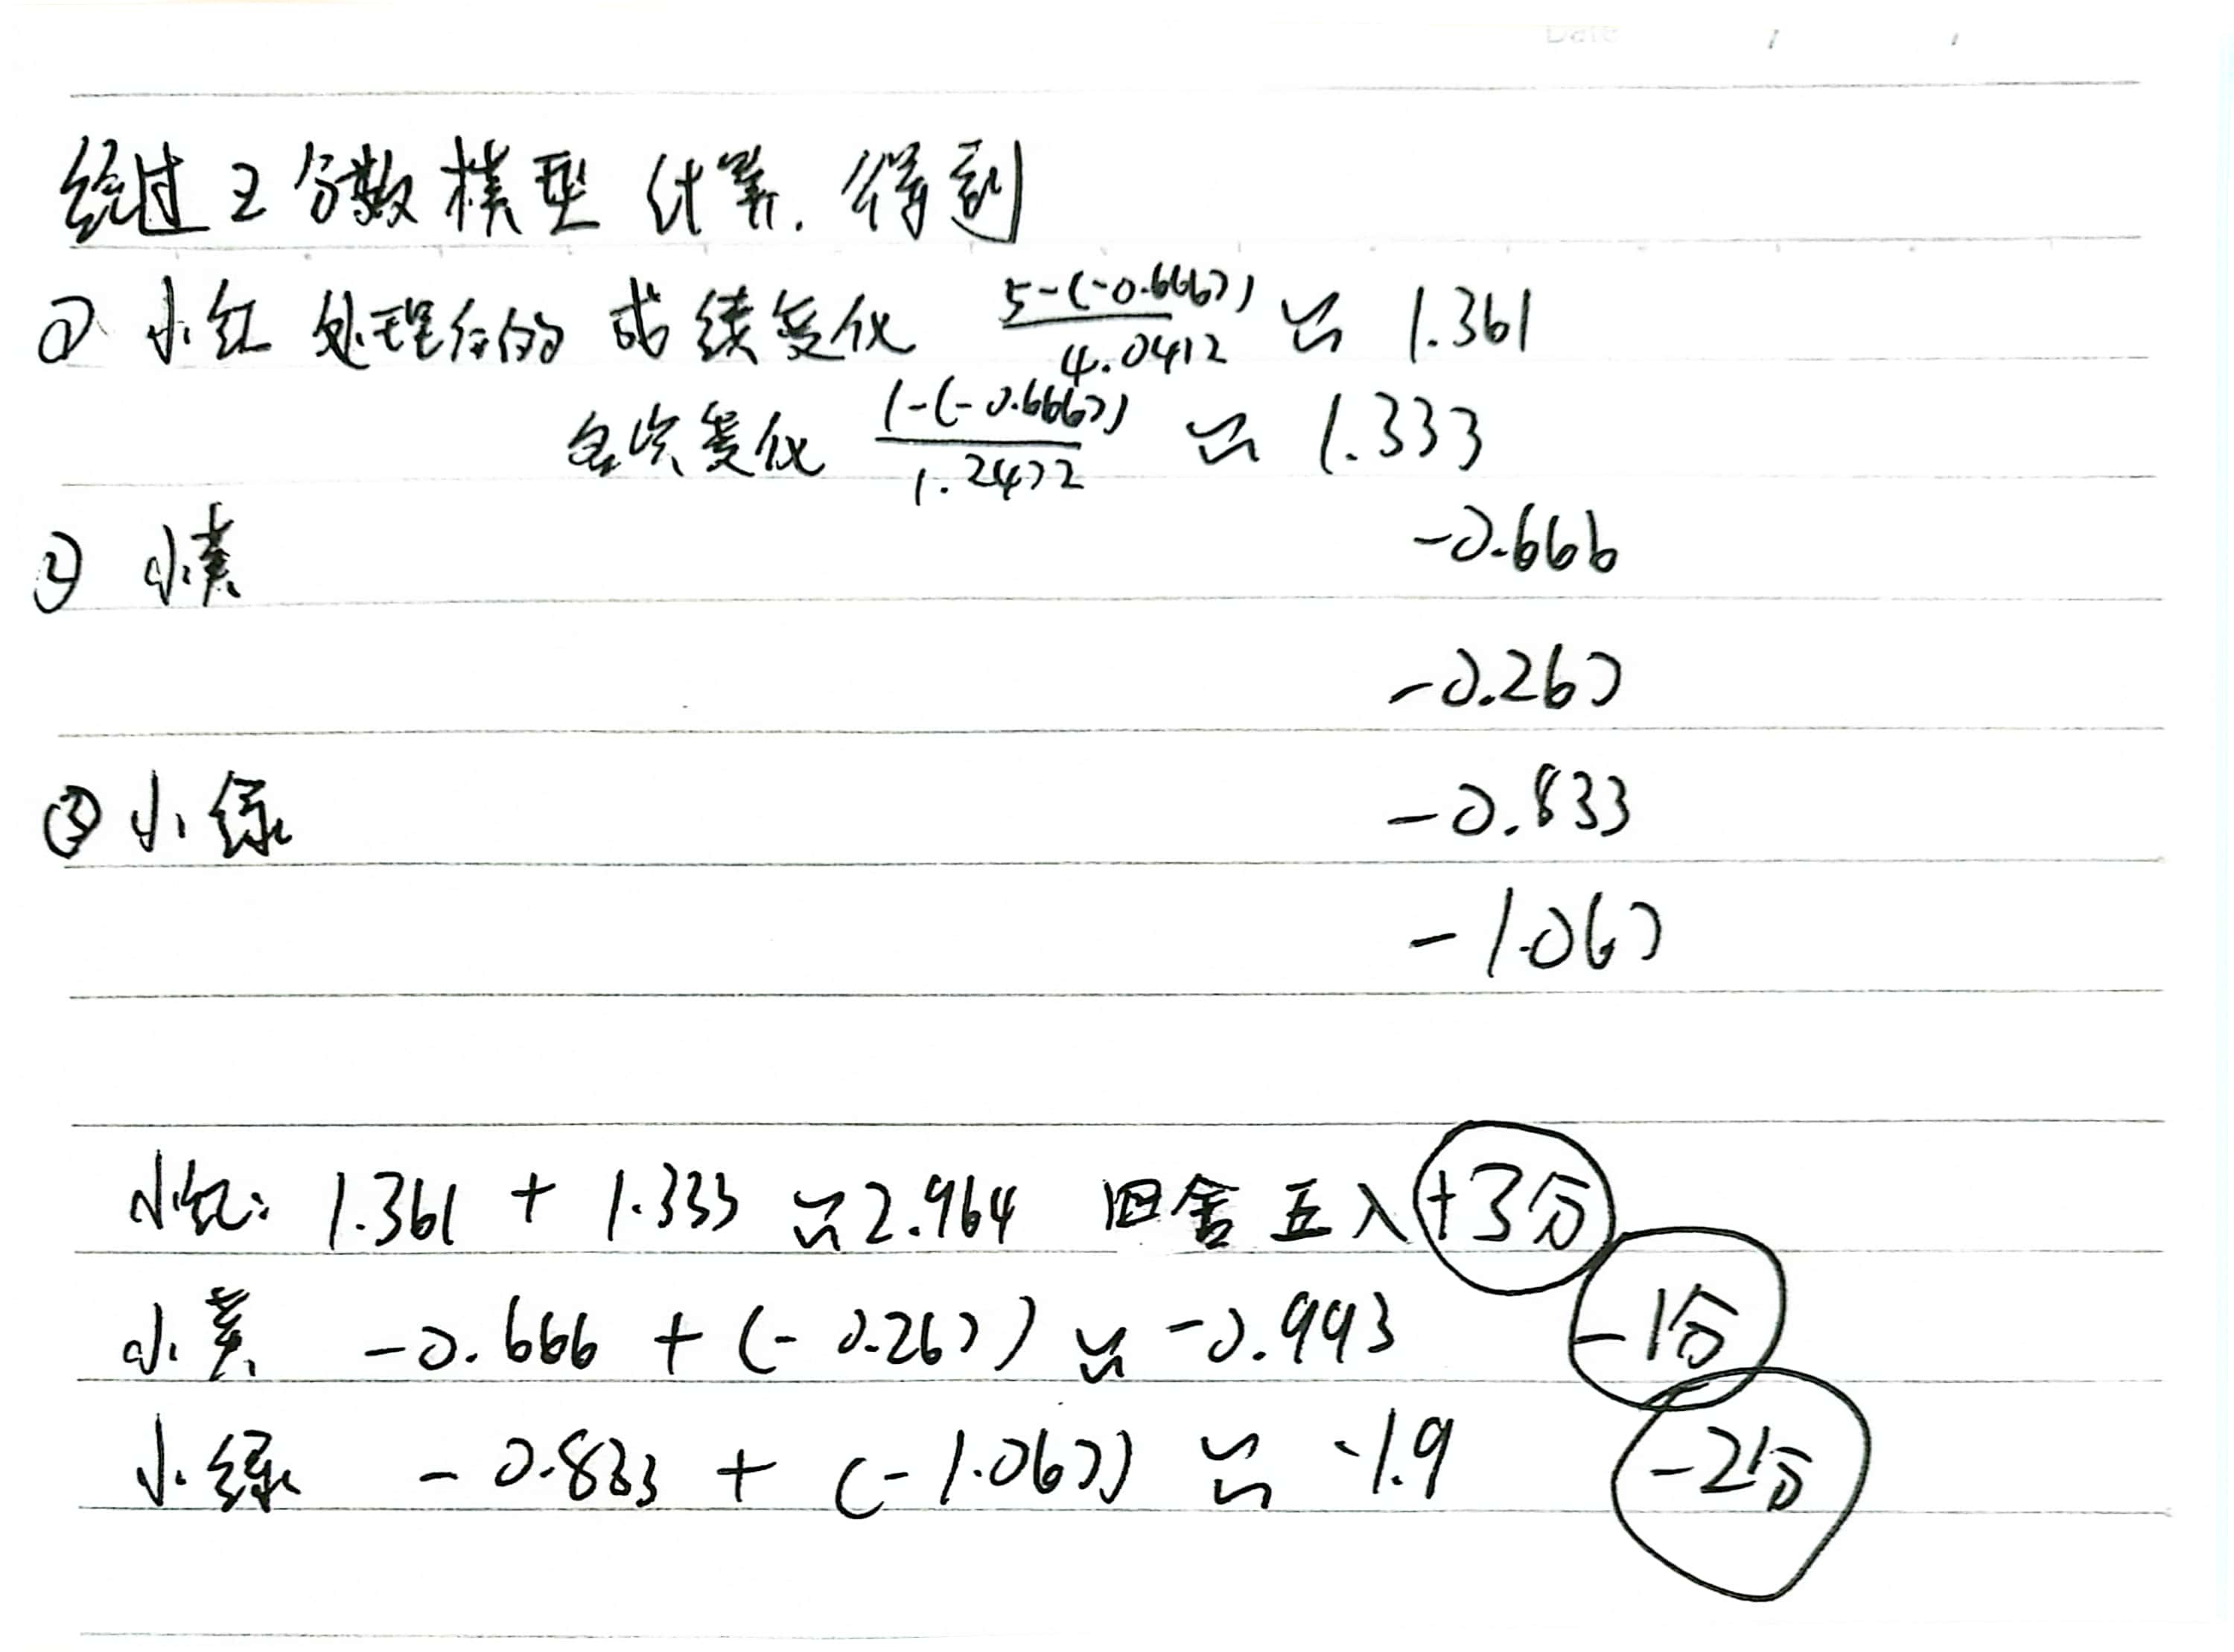 Date / /
经过Z分数模型计算.得到
① 小红 处理后的 成绩变化 \frac{5-(-0.6667)}{4.0412} ≈ 1.361
名次变化 \frac{1-(-0.6667)}{1.2472} ≈ 1.333
② 小黄 -0.666
-0.267
③ 小绿 -0.833
-1.067
小红: 1.361 + 1.333 ≈ 2.964 四舍五入 +3分
小黄 -0.666 + (-0.267) ≈ -0.993 -1分
小绿 -0.833 + (-1.067) ≈ -1.9 -2分